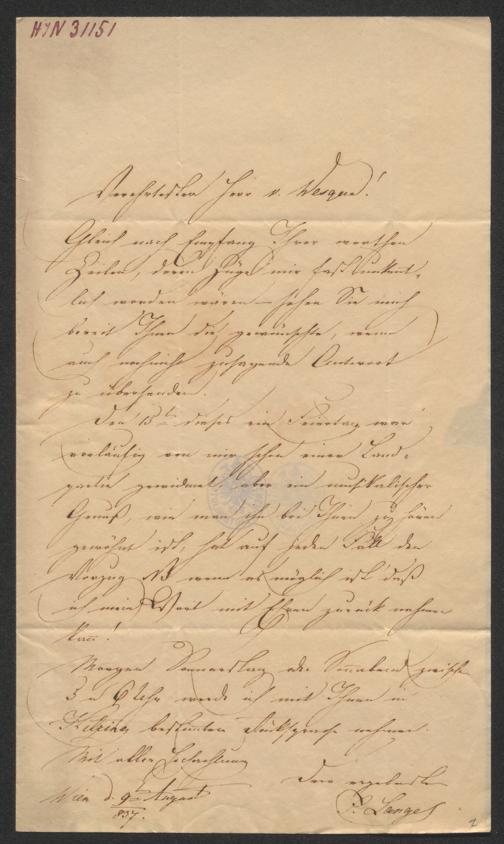 HIN 31151
Verehrtester Herr v. Wesque!
Gleich nach Empfang Ihrer werthen
Zeilen, deren Züge mir fast unkent-
lich worden wären – sehen Sie mich
bereit Ihnen die gewünschte, wenn
auch nochnicht zusagende Antwort
zu übersenden.
Den 15ten dieses ein Feiertag war
vorläufig von mir schon einer Land-
partie gewidmet, aber ein musikalischer
Genuß wie man ihn bei Ihnen zu hören
gewöhnt ist, hat auf jeden Fall den
Vorzug NB wenn es möglich ist daß
ich mein Wort mit Ehren zurück nehmen
kann!
Morgen Donnerstag oder Sonnabend zwischen
5 u 6 Uhr werde ich mit Ihnen in
bestimte Rücksprache nehmen.
Mit aller Hochachtung
Ihr ergebenster
Wien d. 9ten August
837.
2